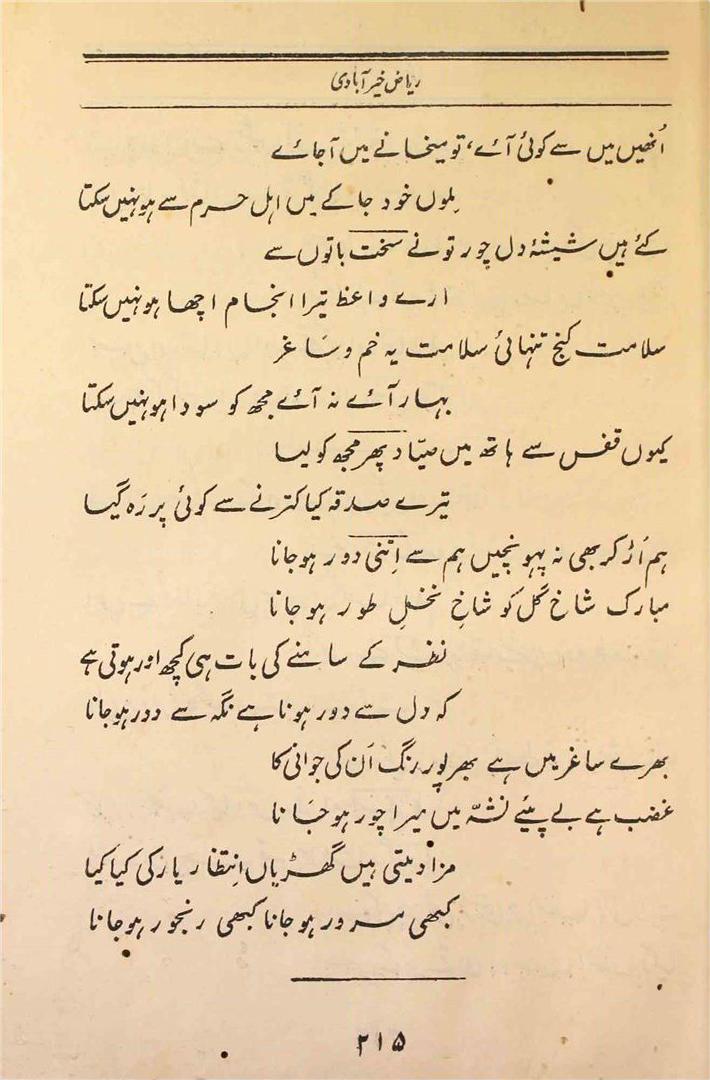 ریاض خیرآبادی
اُنھیں میں سے کوئی آئے، تو میخانے میں آجائے
مِلوں خود جاکے میں اہل حرم سے ہو نہیں سکتا
کئے ہیں شیشۂ دل چور تو نے سخت باتوں سے
ارے واعظ تیرا انجام اچھا ہو نہیں سکتا
سلامت کنج تنہائی سلامت یہ خم و سَاغر
بہار آئے نہ آئے مجھ کو سودا ہو نہیں سکتا
کیوں قفس سے ہاتھ میں صیّاد پھر مجھ کو لیا
تیرے صدقہ کیا کترنے سے کوئی پر رَہ گیا
ہم اُڑ کر بھی نہ پہونچیں ہم سے اِتنی دور ہوجانا
مبارک شاخ گل کو شاخِ نخلِ طور ہوجانا
نظر کے سامنے کی بات ہی کچھ اور ہوتی ہے
کہ دل سے دور ہونا ہے نگہ سے دور ہوجانا
بھرے ساغر میں ہے بھرپور رنگ اُن کی جوانی کا
غضب ہے بے پیئے نشّہ میں میرا چور ہوجَانا
مزا دیتی ہیں گھڑیاں اِنتظار یار کی کیا کیا
کبھی مسرور ہوجانا کبھی رنجور ہوجانا
۲۱۵